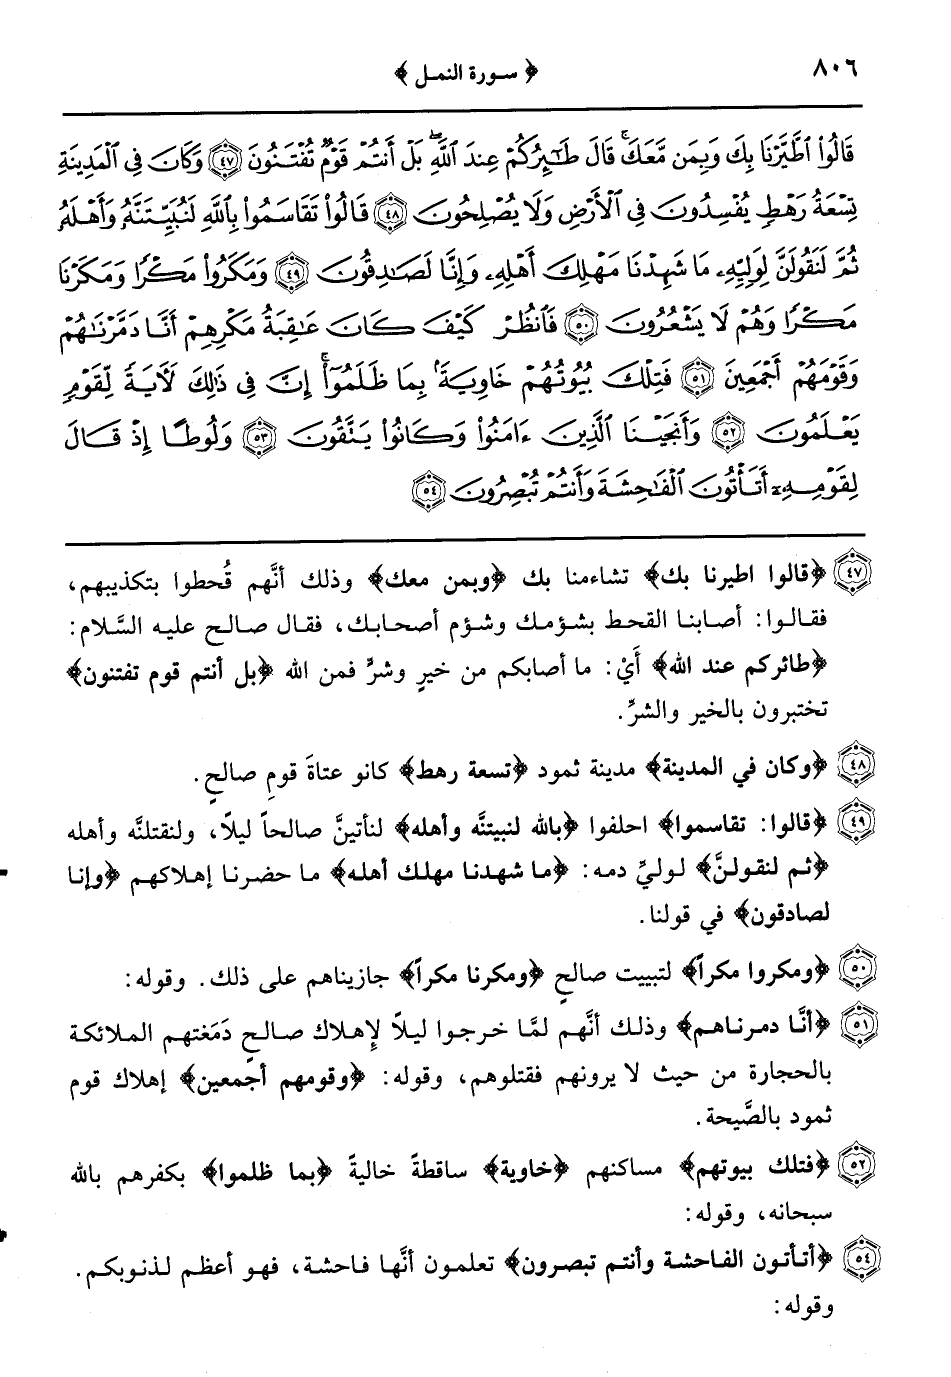 ٨٠٦
﴿ سورة النمل ﴾
قَالُوا۟ ٱطَّيَّرْنَا بِكَ وَبِمَن مَّعَكَ ۚ قَالَ طَـٰٓئِرُكُمْ عِندَ ٱللَّهِ ۖ بَلْ أَنتُمْ قَوْمٌ تُفْتَنُونَ ٤٧ وَكَانَ فِى ٱلْمَدِينَةِ
تِسْعَةُ رَهْطٍ يُفْسِدُونَ فِى ٱلْأَرْضِ وَلَا يُصْلِحُونَ ٤٨ قَالُوا۟ تَقَاسَمُوا۟ بِٱللَّهِ لَنُبَيِّتَنَّهُۥ وَأَهْلَهُۥ
ثُمَّ لَنَقُولَنَّ لِوَلِيِّهِۦ مَا شَهِدْنَا مَهْلِكَ أَهْلِهِۦ وَإِنَّا لَصَـٰدِقُونَ ٤٩ وَمَكَرُوا۟ مَكْرًا وَمَكَرْنَا
مَكْرًا وَهُمْ لَا يَشْعُرُونَ ٥٠ فَٱنظُرْ كَيْفَ كَانَ عَـٰقِبَةُ مَكْرِهِمْ أَنَّا دَمَّرْنَـٰهُمْ
وَقَوْمَهُمْ أَجْمَعِينَ ٥١ فَتِلْكَ بُيُوتُهُمْ خَاوِيَةًۢ بِمَا ظَلَمُوٓا۟ ۗ إِنَّ فِى ذَٰلِكَ لَـَٔايَةً لِّقَوْمٍ
يَعْلَمُونَ ٥٢ وَأَنجَيْنَا ٱلَّذِينَ ءَامَنُوا۟ وَكَانُوا۟ يَتَّقُونَ ٥٣ وَلُوطًا إِذْ قَالَ
لِقَوْمِهِۦٓ أَتَأْتُونَ ٱلْفَـٰحِشَةَ وَأَنتُمْ تُبْصِرُونَ ٥٤
٤٧ ﴿قالوا اطيرنا بك﴾ تشاءمنا بك ﴿وبمن معك﴾ وذلك أنَّهم قُحطوا بتكذيبهم،
فقالوا: أصابنا القحط بشؤمك وشؤم أصحابك، فقال صالح عليه السَّلام:
﴿طائركم عند الله﴾ أَيْ: ما أصابكم من خيرٍ وشرٍّ فمن الله ﴿بل أنتم قوم تفتنون﴾
تختبرون بالخير والشرِّ.
٤٨ ﴿وكان في المدينة﴾ مدينة ثمود ﴿تسعة رهط﴾ كانو عتاةَ قومِ صالحٍ.
٤٩ ﴿قالوا: تقاسموا﴾ احلفوا ﴿بالله لنبيتنَّه وأهله﴾ لنأتينَّ صالحاً ليلاً، ولنقتلنَّه وأهله
﴿ثم لنقولنَّ﴾ لوليِّ دمه: ﴿ما شهدنا مهلك أهله﴾ ما حضرنا إهلاكهم ﴿وإنا
لصادقون﴾ في قولنا.
٥٠ ﴿ومكروا مكراً﴾ لتبييت صالحٍ ﴿ومكرنا مكراً﴾ جازيناهم على ذلك. وقوله:
٥١ ﴿أنَّا دمرناهم﴾ وذلك أنَّهم لمَّا خرجوا ليلاً لإِهلاك صالحٍ دَمَغتهم الملائكة
بالحجارة من حيث لا يرونهم فقتلوهم، وقوله: ﴿وقومهم أجمعين﴾ إهلاك قوم
ثمود بالصَّيحة.
٥٢ ﴿فتلك بيوتهم﴾ مساكنهم ﴿خاوية﴾ ساقطةً خاليةً ﴿بما ظلموا﴾ بكفرهم بالله
سبحانه، وقوله:
٥٤ ﴿أتأتون الفاحشة وأنتم تبصرون﴾ تعلمون أنَّها فاحشة، فهو أعظم لذنوبكم.
وقوله: